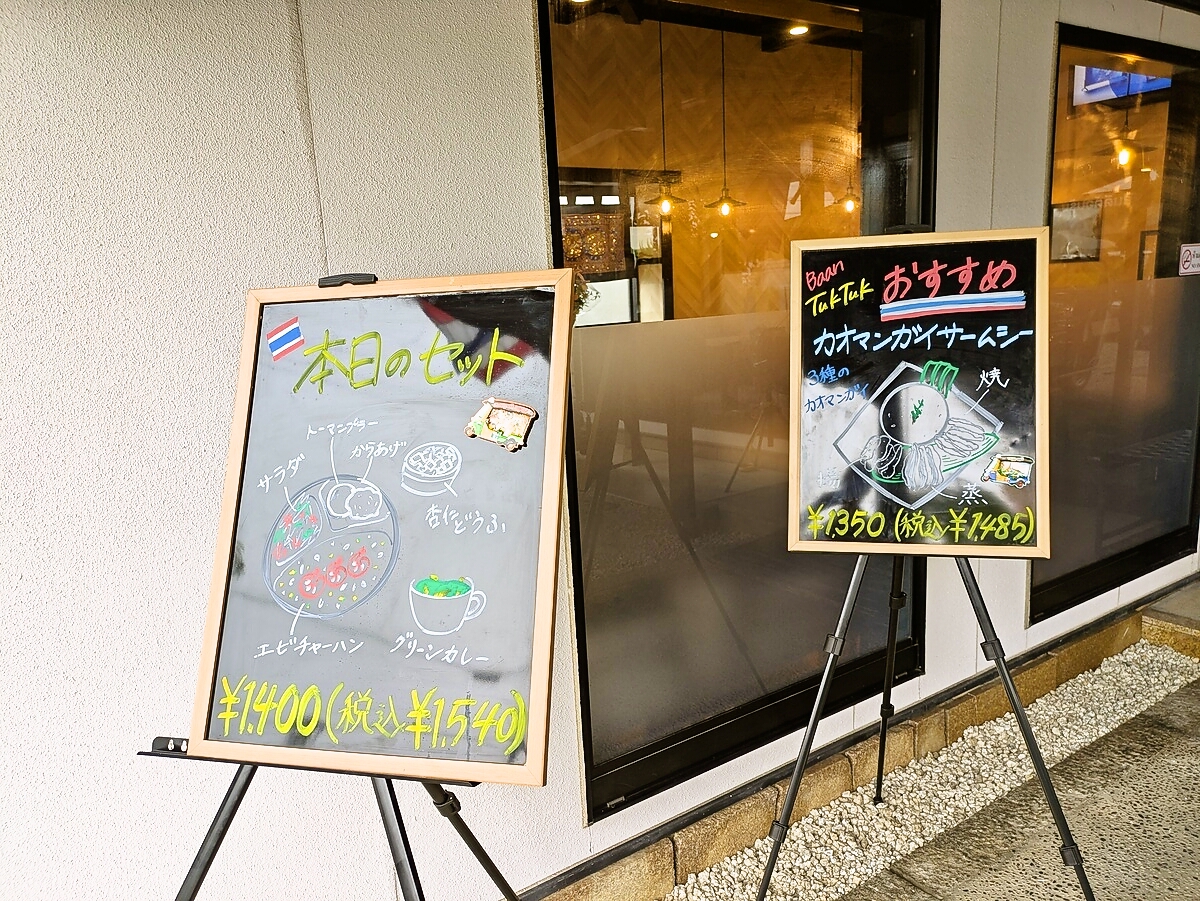 本日のセット
トーマンプラー
からあげ
サラダ
杏仁どうふ
エビチャーハン
グリーンカレー
¥1.400(税込¥1.540)
Baan
TukTuk
おすすめ
カオマンガイサームシー
3種の
カオマンガイ
焼
蒸
¥1.350(税込¥1.485)